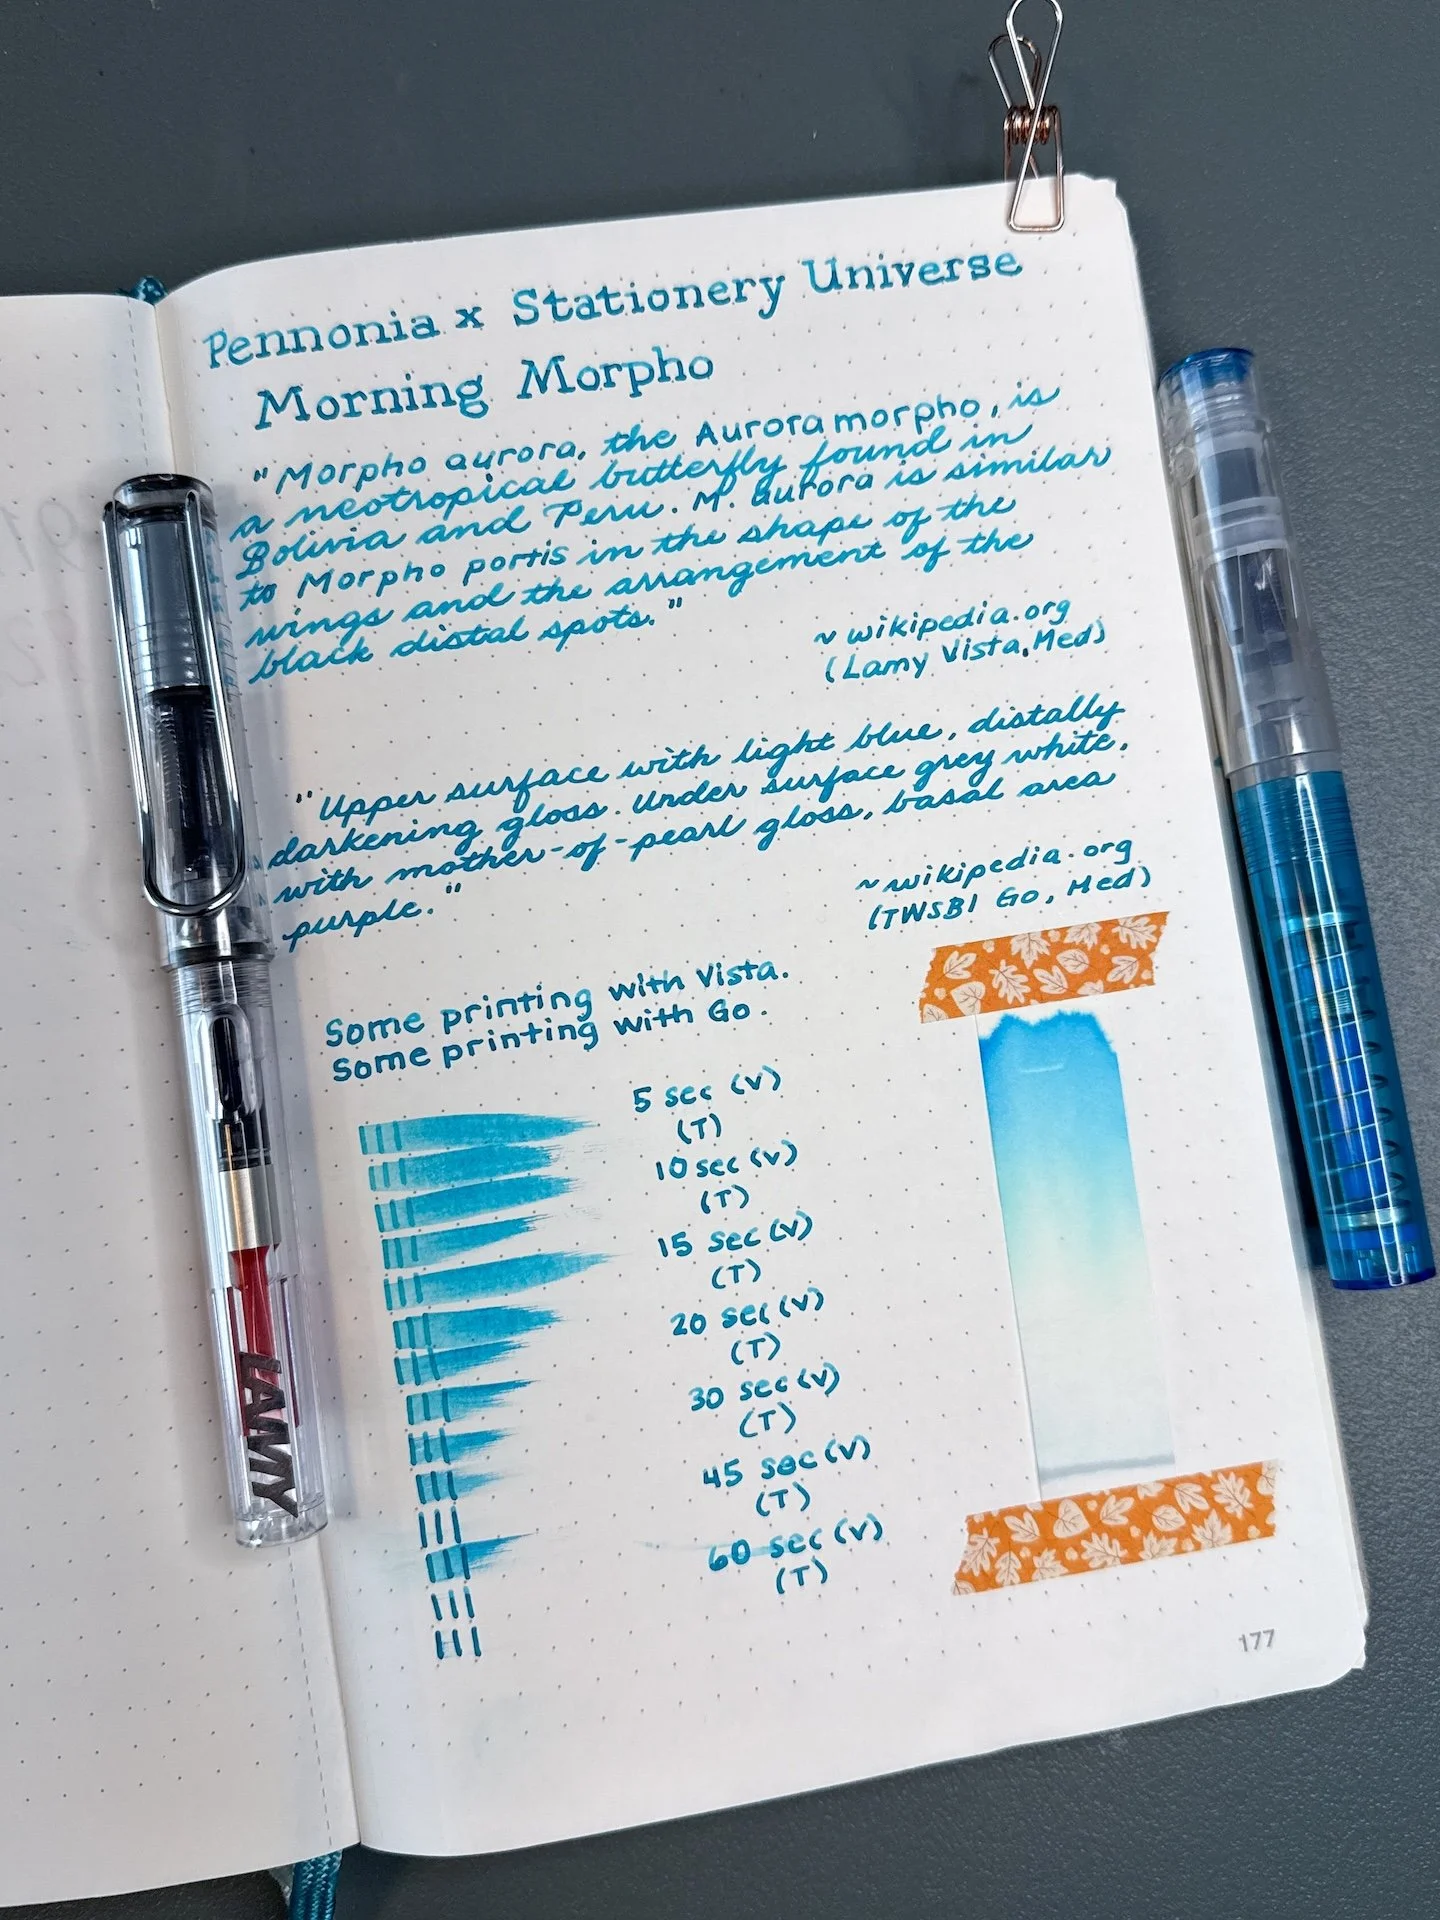 Pennonia x Stationery Universe
Morning Morpho
"Morpho aurora, the Aurora morpho, is
a neotropical butterfly found in
Bolivia and Peru. M. aurora is similar
to Morpho portis in the shape of the
wings and the arrangement of the
black distal spots."
~ wikipedia.org
(Lamy Vista, Med)
"Upper surface with light blue, distally
darkening gloss. Under surface grey white,
with mother-of-pearl gloss, basal area
purple."
~ wikipedia.org
(TWSBI Go, Med)
Some printing with Vista.
Some printing with Go.
5 sec (V)
(T)
10 sec (V)
(T)
15 sec (V)
(T)
20 sec (V)
(T)
30 sec (V)
(T)
45 sec (V)
(T)
60 sec (V)
(T)
177
LAMY